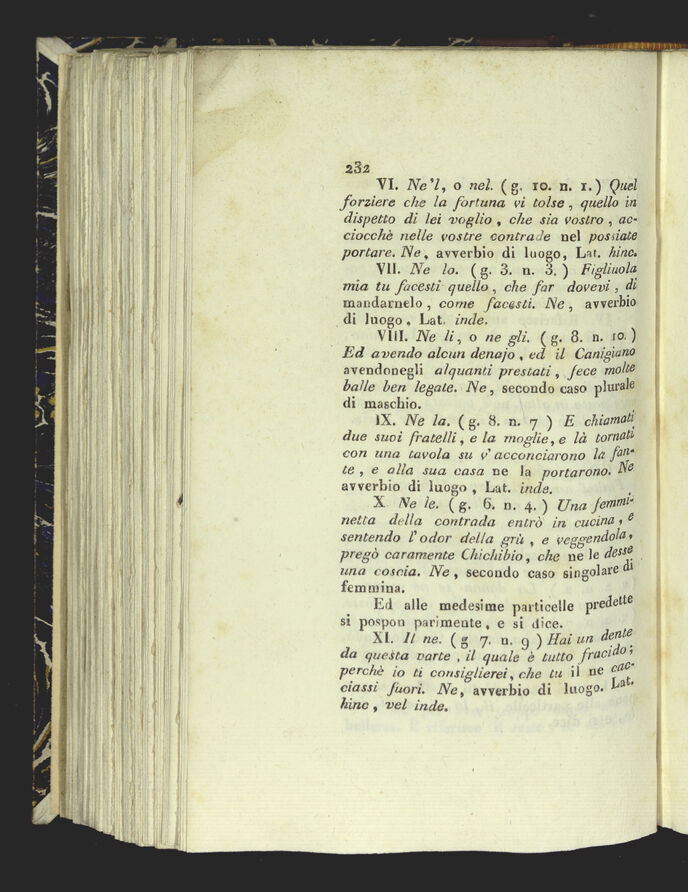 232
VI. Ne'l, o nel. (g. 10. n. 1.) Quel
forziere che la fortuna vi tolse, quello in
dispetto di lei voglio, che sia vostro, ac-
ciocchè nelle vostre contrade nel possiate
portare. Ne, avverbio di luogo, Lat. hinc.
VII. Ne lo. (g. 3. n. 3.) Figliuola
mia tu facesti quello, che far dovevi, di
mandarnelo, come facesti. Ne, avverbio
di luogo. Lat. inde.
VIII. Ne li, o ne gli. (g. 8. n. 10.)
Ed avendo alcun denajo, ed il Canigiano
avendonegli alquanti prestati, fece molte
balle ben legate. Ne, secondo caso plurale
di maschio.
IX. Ne la. (g. 8. n. 7) E chiamati
due suoi fratelli, e la moglie, e là tornati
con una tavola su v'acconciarono la fan-
te, e alla sua casa ne la portarono. Ne
avverbio di luogo, Lat. inde.
X. Ne le. (g. 6. n. 4.) Una femmi-
netta della contrada entrò in cucina, e
sentendo l'odor della grù, e veggendola,
pregò caramente Chichibio, che ne le desse
una coscia. Ne, secondo caso singolare di
femmina.
Ed alle medesime particelle predette
si pospon parimente, e si dice.
XI. Il ne. (g 7. n. 9) Hai un dente
da questa parte, il quale è tutto fracido;
perchè io ti consiglierei, che tu il ne cac-
ciassi fuori. Ne, avverbio di luogo. Lat.
hinc, vel inde.